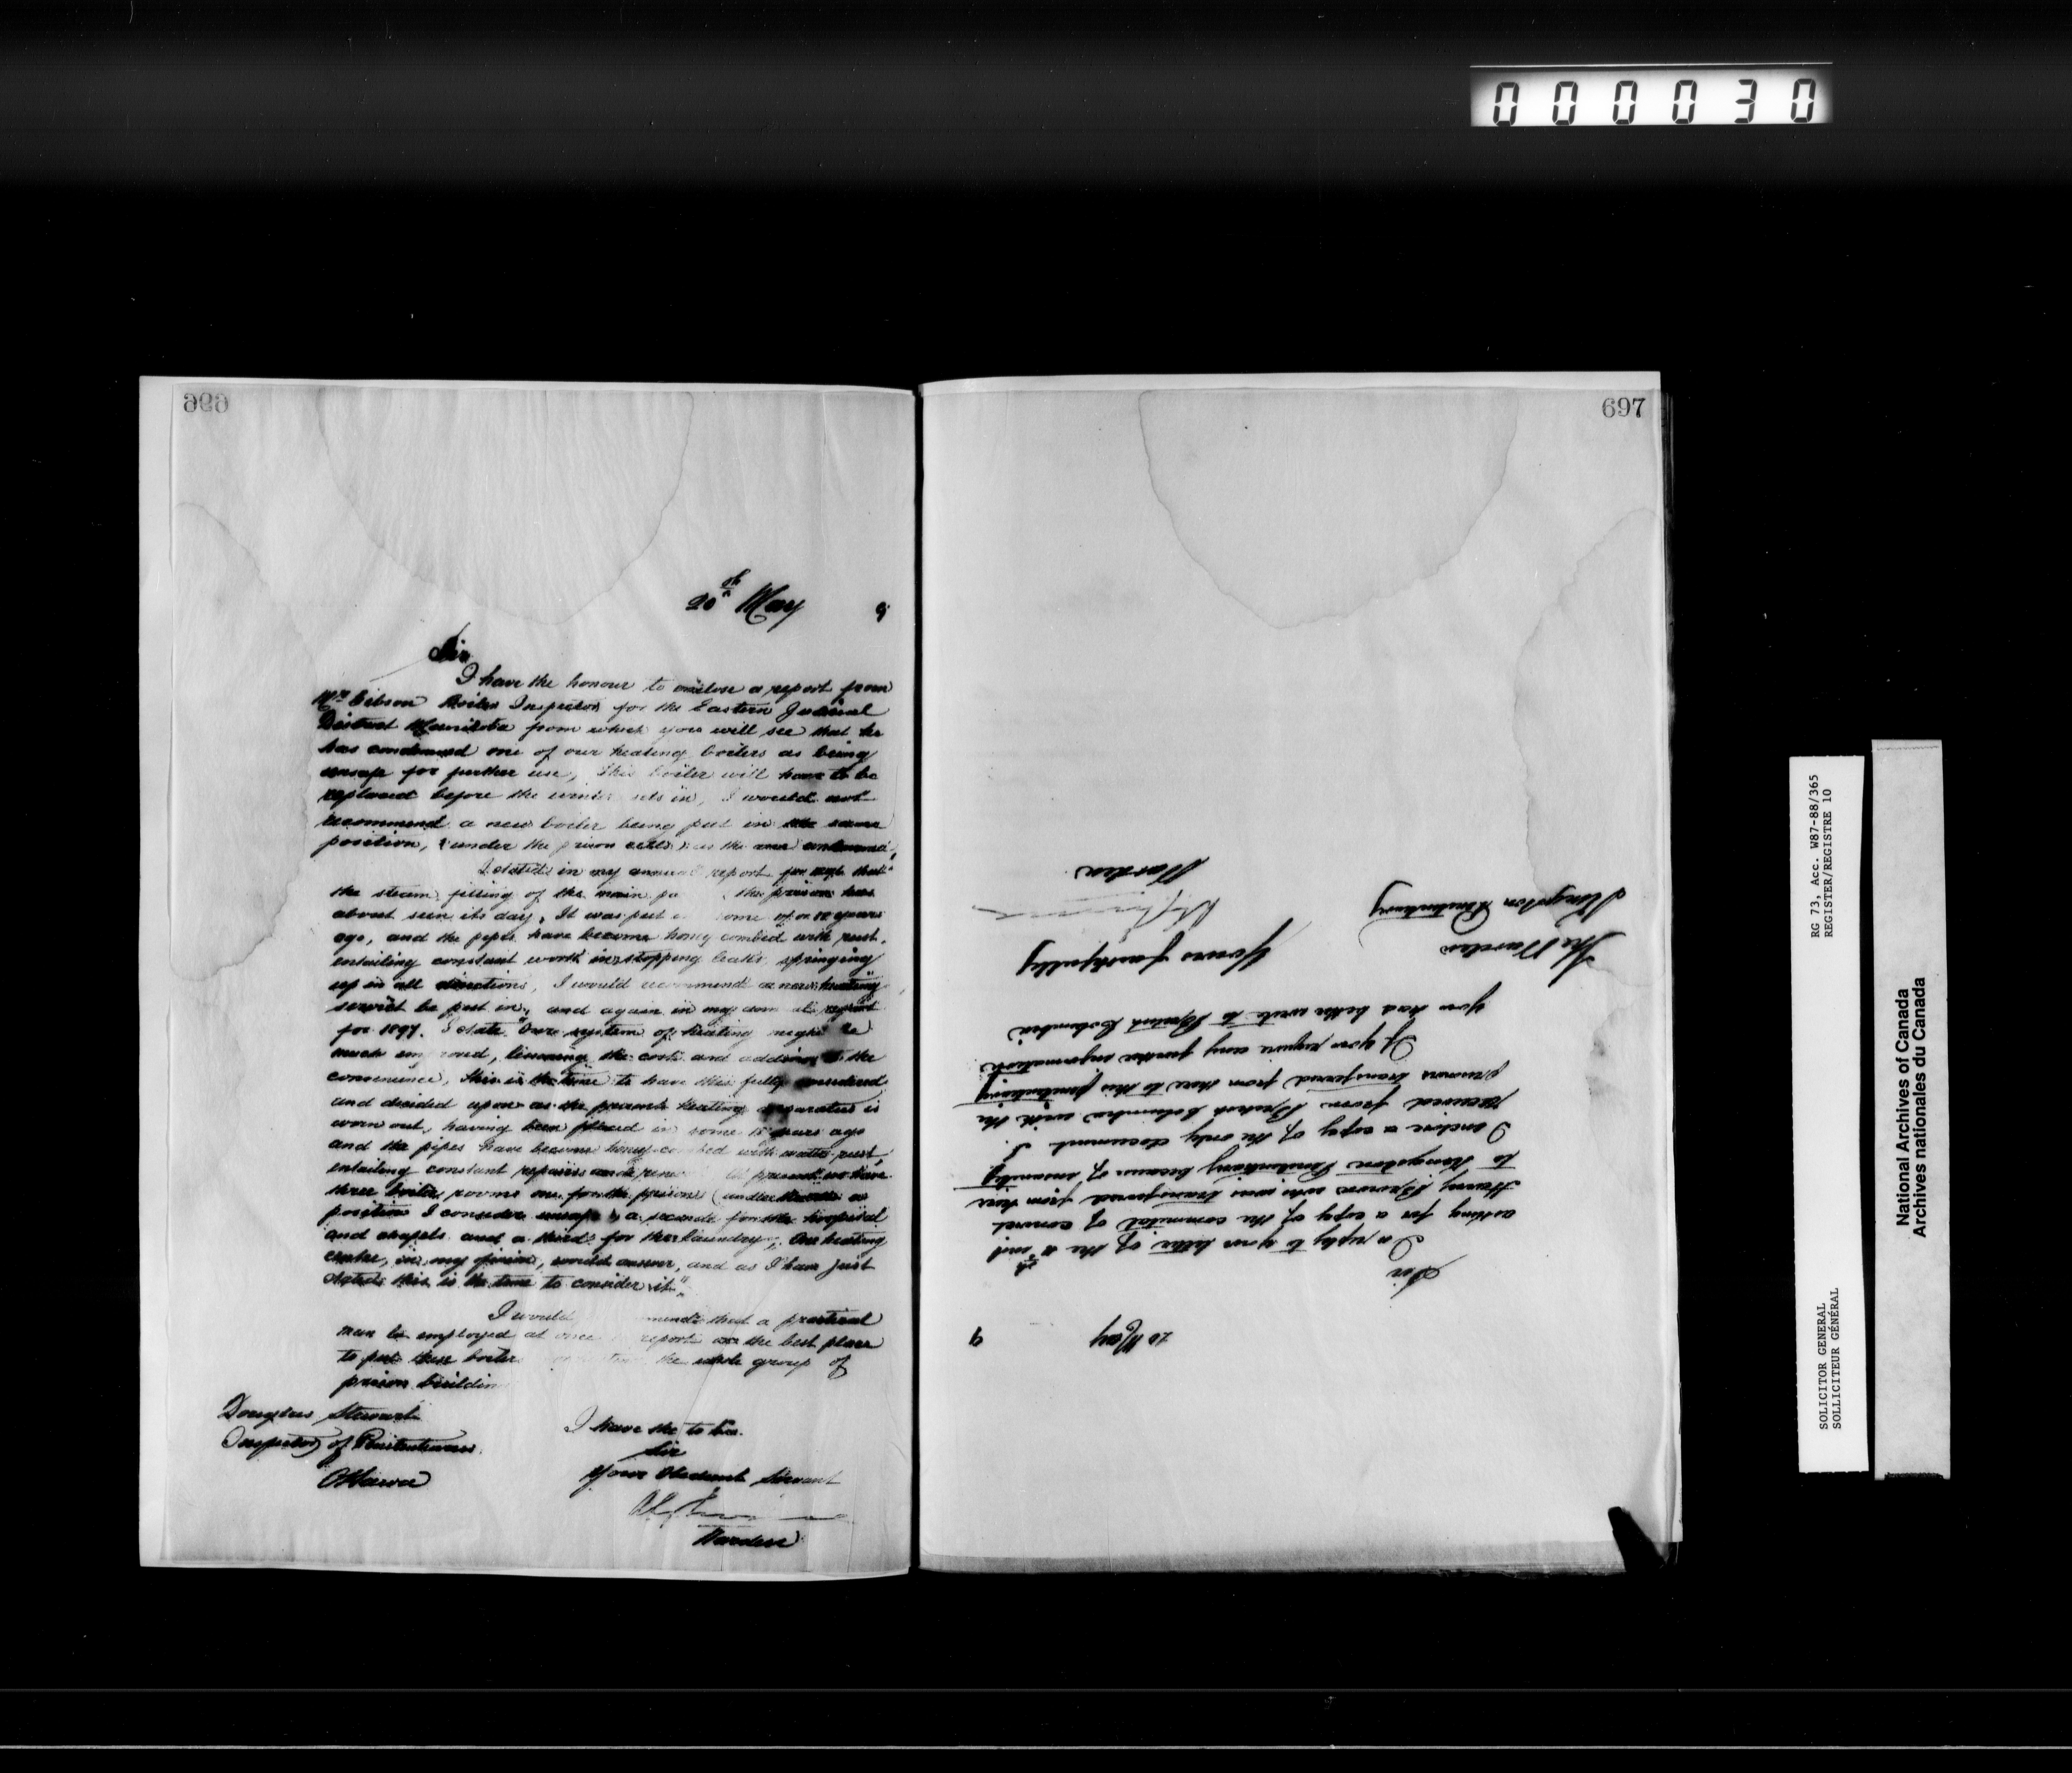 000030
696
20th May 9
Sir
I have the honour to enclose a report from
Mr Gibson Boiler Inspector for the Eastern Judicial
District Manitoba from which you will see that he
has condemned one of our heating boilers as being
unsafe for further use, This boiler will have to be
replaced before the winter sets in, I would not
recommend a new boiler being put in the same
position, (under the prison cells) as the one condemned,
I stated in my annual report for that
the steam fitting of the main pa the prison has
about seen its day, It was put some years
ago, and the pipes have become honey combed with rust,
entailing constant work in stopping leaks springing
up in all directions, I would recommend a new heating
service be put in, and again in my report
for 1897. I state "Our system of heating might be
much improved, lessening the cost and adding to the
convenience, this is the time to have this fully considered
and decided upon as the present heating apparatus is
worn out, having been placed in some 15 years ago
and the pipes have become honey combed with rust,
entailing constant repairs and At present we have
three boiler rooms one for the prison (under the cells a
position I consider unsafe) a second for the hospital
and chapels and a third for the laundry, One heating
centre, in my opinion, would answer, and as I have just
stated this is the time to consider it".
I would mend that a practical
man be employed at once report on the best place
to put these boilers the whole group of
prison buildin
Douglas Stewart
Inspector of Penitentiaries
Ottawa
I have the to be.
Sir
Your Obedient Servant
Warden
697
20 May 9
Sir
In reply to your letter of the inst
asking for a copy of the commital of convict
Henry Brown who was transferred from here
to Kingston Penitentiary because of insanity,
I enclose a copy of the only document I
received from British Columbia with the
prisoners transferred from there to this penitentiary
If you require any further information
you had better write to British Columbia
Yours faithfully
Warden
The Warden
Kingston Penitentiary
RG 73, Acc. W87-88/365
REGISTER/REGISTRE 10
SOLICITOR GENERAL
SOLLICITEUR GÉNÉRAL
National Archives of Canada
Archives nationales du Canada